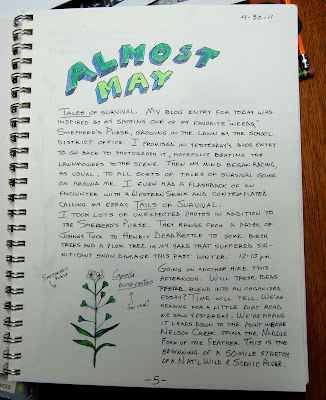 4-30-11
ALMOST
MAY
TALES OF SURVIVAL. MY BLOG ENTRY FOR TODAY WAS
INSPIRED BY MY SPOTTING ONE OF MY FAVORITE "WEEDS,"
SHEPHERD'S PURSE, GROWING IN THE LAWN BY THE SCHOOL
DISTRICT OFFICE. I PROMISED IN YESTERDAY'S BLOG ENTRY
TO GO BACK TO PHOTOGRAPH IT, HOPEFULLY BEATING THE
LAWNMOWERS TO THE SCENE. THEN MY MIND BEGAN RACING,
AS USUAL, TO ALL SORTS OF TALES OF SURVIVAL GOING
ON AROUND ME. I EVEN HAD A FLASHBACK OF AN
ENCOUNTER WITH A WESTERN SKINK AND CONTEMPLATED
CALLING MY ESSAY TAILS OF SURVIVAL.
I TOOK LOTS OF UNEXPECTED PHOTOS IN ADDITION TO
THE SHEPHERD'S PURSE. THEY RANGE FROM A PATCH OF
JOHNNY TUCK TO HENBIT DEAD NETTLE TO SOME BIRCH
TREES AND A PLUM TREE IN MY YARD THAT SUFFERED SIG-
NIFICANT SNOW DAMAGE THIS PAST WINTER. 12:10 P.M.
GOING ON ANOTHER HIKE THIS
AFTERNOON. WILL THESE IDEAS
BLEND INTO AN ORGANIZED
ESSAY? TIME WILL TELL. WE'RE
HEADING FOR A LITTLE DIRT ROAD
WE SAW YESTERDAY. WE'RE HOPING
IT LEADS DOWN TO THE POINT WHERE
NELSON CREEK JOINS THE MIDDLE
FORK OF THE FEATHER. THIS IS THE
BEGINNING OF A 50-MILE STRETCH
OF A NAT'L WILD & SCENIC RIVER.
SHEPHERD'S
PURSE
Capsella
bursa-pastoris
-5-